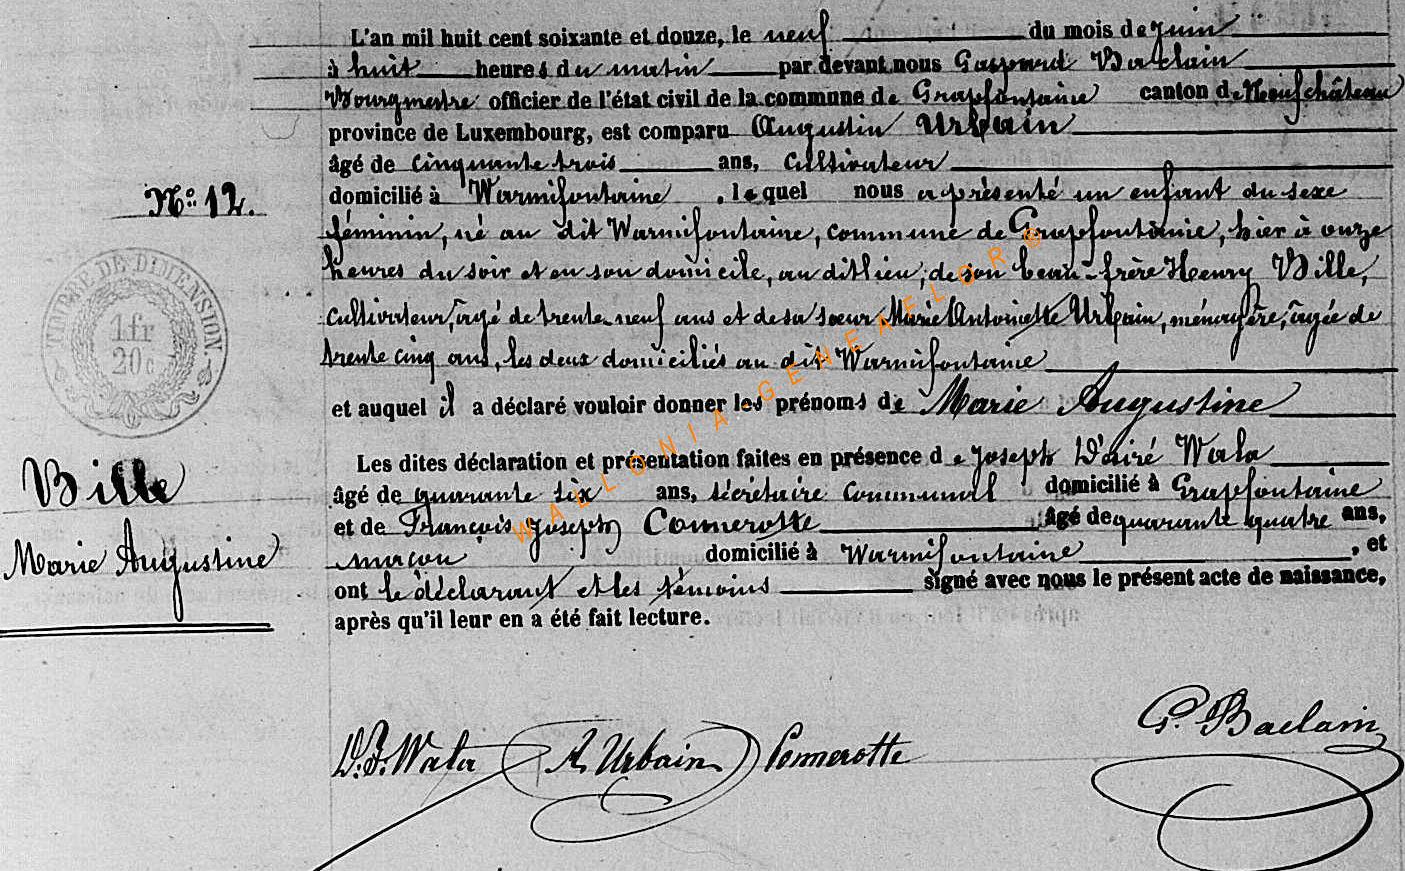 L'an mil huit cent soixante et douze, le neuf du mois de Juin
à huit heures du matin par devant nous Gaspard Baclain
Bourgmestre officier de l'état civil de la commune de Grapfontaine canton de Neufchâteau
province de Luxembourg, est comparu Augustin Urbain
âgé de cinquante trois ans, cultivateur
domicilié à Warmifontaine, lequel nous a présenté un enfant du sexe
féminin, né au dit Warmifontaine, commune de Grapfontaine, hier à onze
heures du soir et en son domicile, au dit lieu, de son beau-frère Henry Bille,
cultivateur, âgé de trente-neuf ans et de sa sœur Marie Antoinette Urbain, ménagère, âgée de
trente cinq ans, les deux domiciliés au dit Warmifontaine
et auquel il a déclaré vouloir donner les prénoms de Marie Augustine
Les dites déclaration et présentation faites en présence de Joseph Désiré Wala
âgé de quarante six ans, secrétaire communal domicilié à Grapfontaine
et de François Joseph Connerotte âgé de quarante quatre ans,
maçon domicilié à Warmifontaine, et
ont le déclarant et les témoins signé avec nous le présent acte de naissance,
après qu'il leur en a été fait lecture.
N°: 12.
TIMBRE DE DIMENSION.
1 fr
20 c
Bille
Marie Augustine
D. J. Wala A. Urbain Connerotte G. Baclain
WALLONIA-GENEAFLOR ©